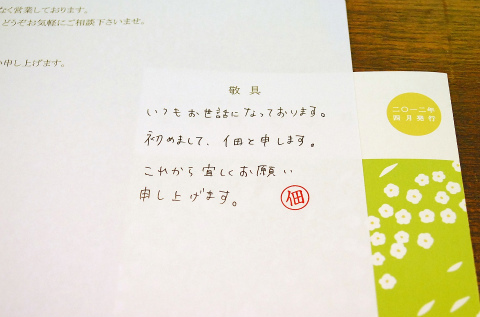 なく営業しております。
どうぞお気軽にご相談下さいませ。
申し上げます。
敬具
いつもお世話になっております。
初めまして、佃と申します。
これから宜しくお願い
申し上げます。
佃
二〇一二年
四月発行